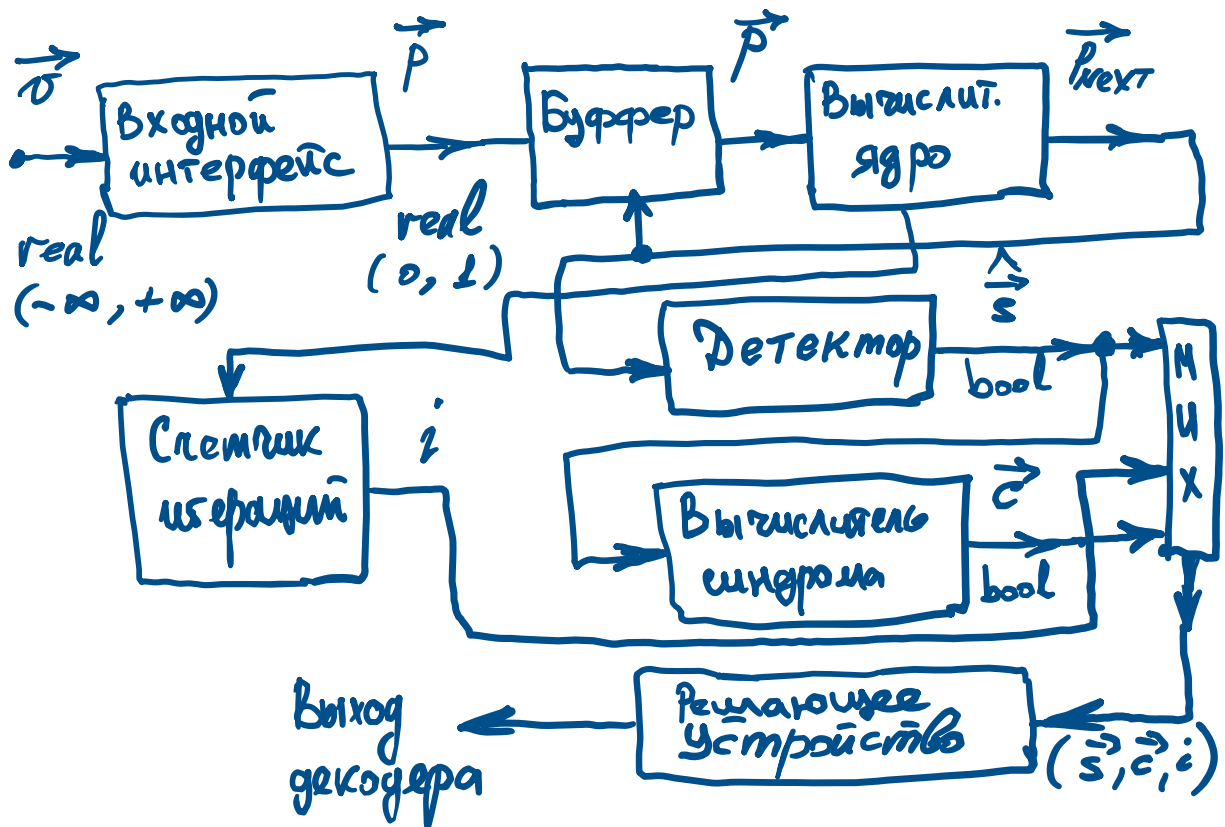 v⃗
Входной
интерфейс
real
(-∞, +∞)
P⃗
real
(0, 1)
Буффер
P⃗
Вычислит.
ядро
P⃗next
Детектор
ŝ⃗
bool
МИХ
Счетчик
итераций
i
Вычислитель
синдрома
c⃗
bool
Решающее
устройство
(s⃗, c⃗, i)
Выход
декодера